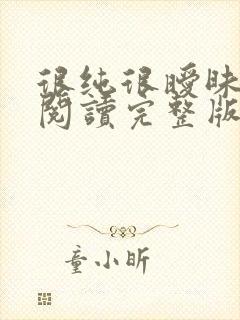 很纯很曖昧
閱讀完整版
童小昕